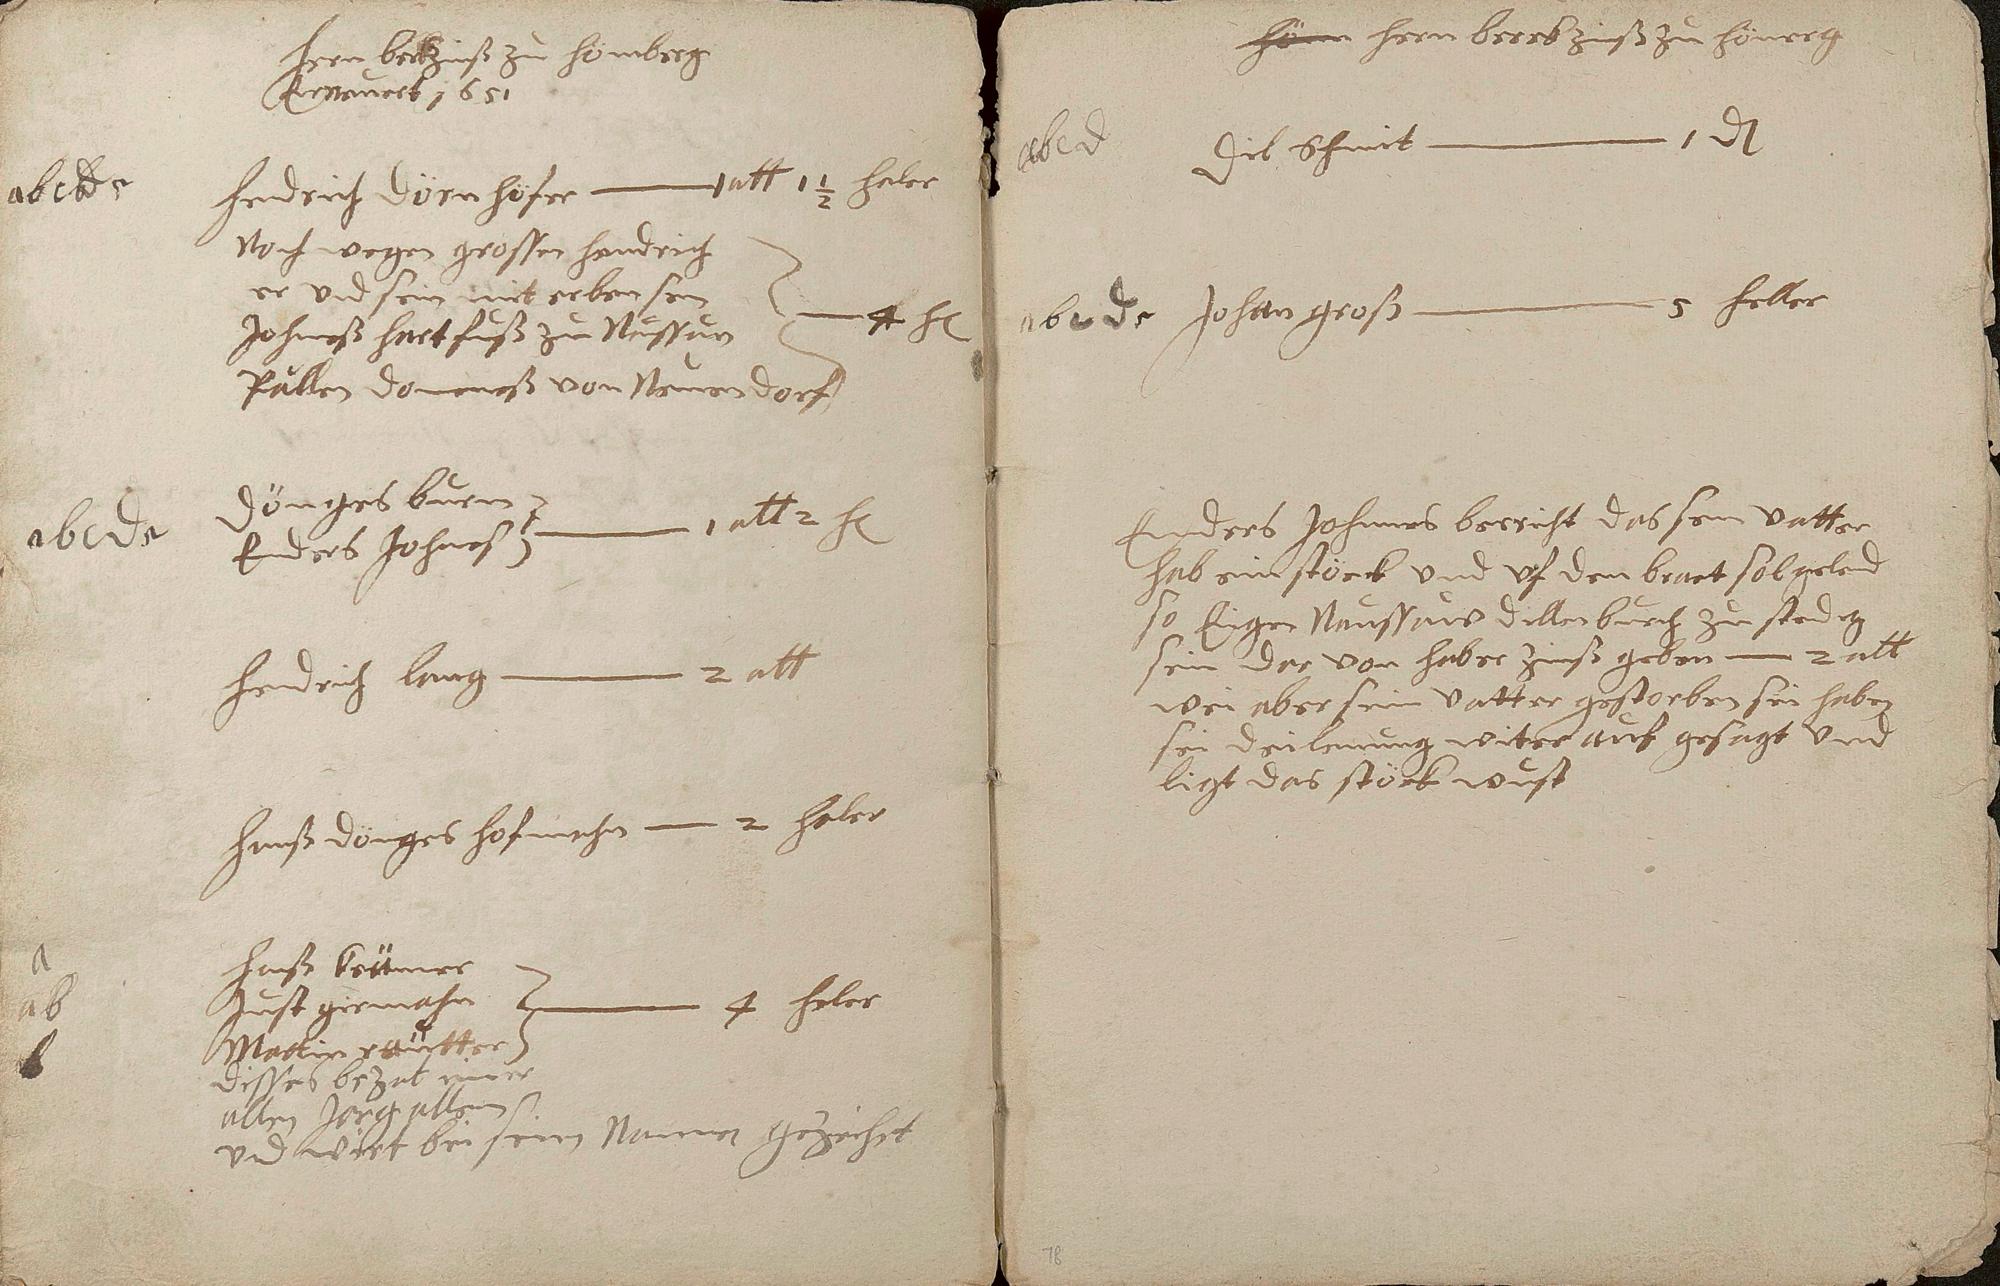 hern berckzinß zu hömberg
Ernneuert 1651
abcde hendrich dörnhöfer — 1 att 1 1/2 heler
Noch wegen grossen hendrich
er vnd sein mit erben sein
Johneß hartfuß zu Nussaun — 4 hl
Pallen domeneß von Neuendorf
abcde dönges burn
Enders Johnes — 1 att 2 hl
hendrich lang — 2 att
hanß dönges hofmahn — 2 heler
a hanß
ab Just germahn — 4 heler
b Martin reutter
disses bezat
allen Jorg allein
vnd wirt bei seinen Namen gezeichet
hern berckzinß zu hönerg
abcd Dil Schmit — 1 d
abcde Johan groß — 5 heller
Enders Johnnes bericht das sein vatter
hab ein stöck vnd vf dem braet sol gelend
so Eigen Naussaw dillenburch zu stedig
sein dar von haber zinß geben — 2 att
wei aber sein vatter gestorben sei haben
sei deilenung witer auf gesagt vnd
ligt das stöck wust
78